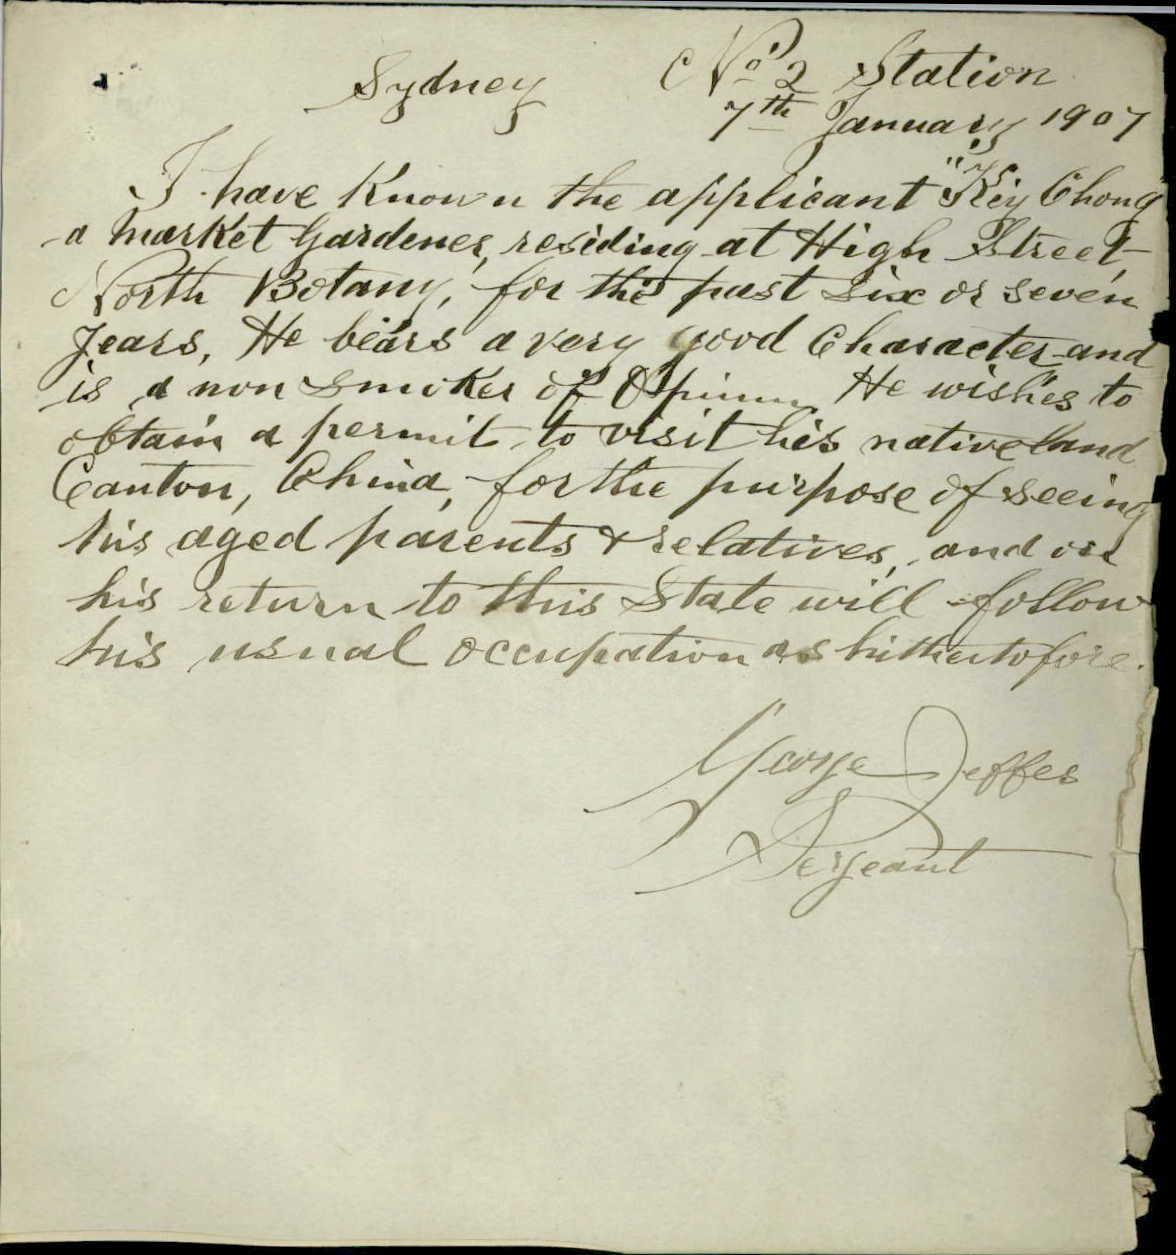 Sydney No 2 Station
7th January 1907
I have known the applicant "Key Chong
a Market Gardener, residing at High Street,
North Botany, for the past six or seven
years, He bears a very good Character and
is a non smoker of Opium He wishes to
obtain a permit to visit his native land
Canton, China, for the purpose of seeing
his aged parents & relatives, and on
his return to this State will follow
his usual occupation as hithertofore.
George Jeffes
Sergeant